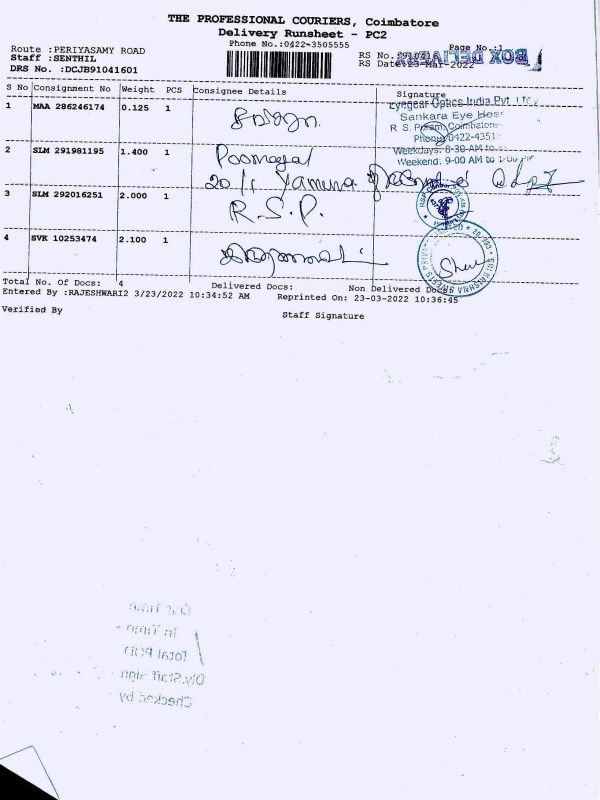 THE PROFESSIONAL COURIERS, Coimbatore
Delivery Runsheet - PC2
Phone No.:0422-3505555
Page No.:1
Route :PERIYASAMY ROAD
Staff :SENTHIL
DRS No. :DCJB91041601
RS No.
RS Date:23-Mar-2022
BOX DELIVERY
S No Consignment No Weight PCS Consignee Details Signature
1 MAA 286246174 0.125 1
Eyegear Optics India Pvt. Ltd.
Sankara Eye Hosp
R S Puram, Coimbatore
Phone: 0422-4351
Weekdays: 8-30 AM to
Weekend: 9-00 AM to
2 SLM 291981195 1.400 1 Poomagal
20/1 Yamuna
3 SLM 292016251 2.000 1 R.S.P.
4 SVK 10253474 2.100 1
SRI KRISHNA SWEETS PRIVATE LIMITED
Total No. Of Docs: 4 Delivered Docs: Non Delivered Docs:
Entered By :RAJESHWARI2 3/23/2022 10:34:52 AM Reprinted On: 23-03-2022 10:36:45
Verified By Staff Signature
Out Time
In Time
Total POD
Div.Staff Sign
Checked by